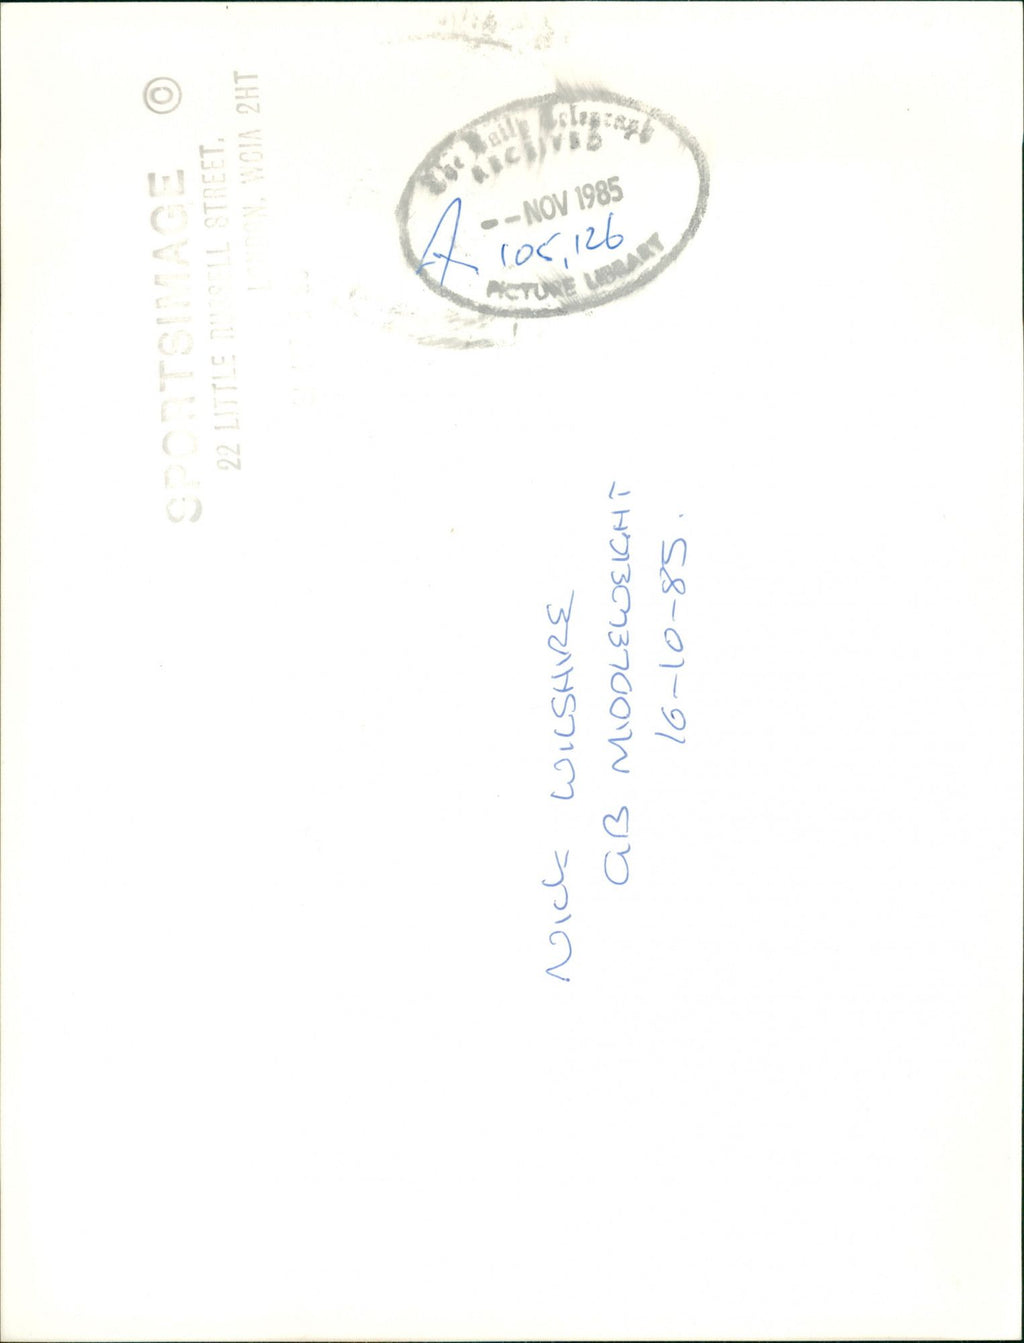 SPORTSIMAGE ©
22 LITTLE RUSSELL STREET,
LONDON. WC1A 2HT
The Daily Telegraph
RECEIVED
-- NOV 1985
A 105,126
PICTURE LIBRARY
NICK WILSHIRE
GB MIDDLEWEIGHT
16-10-85.